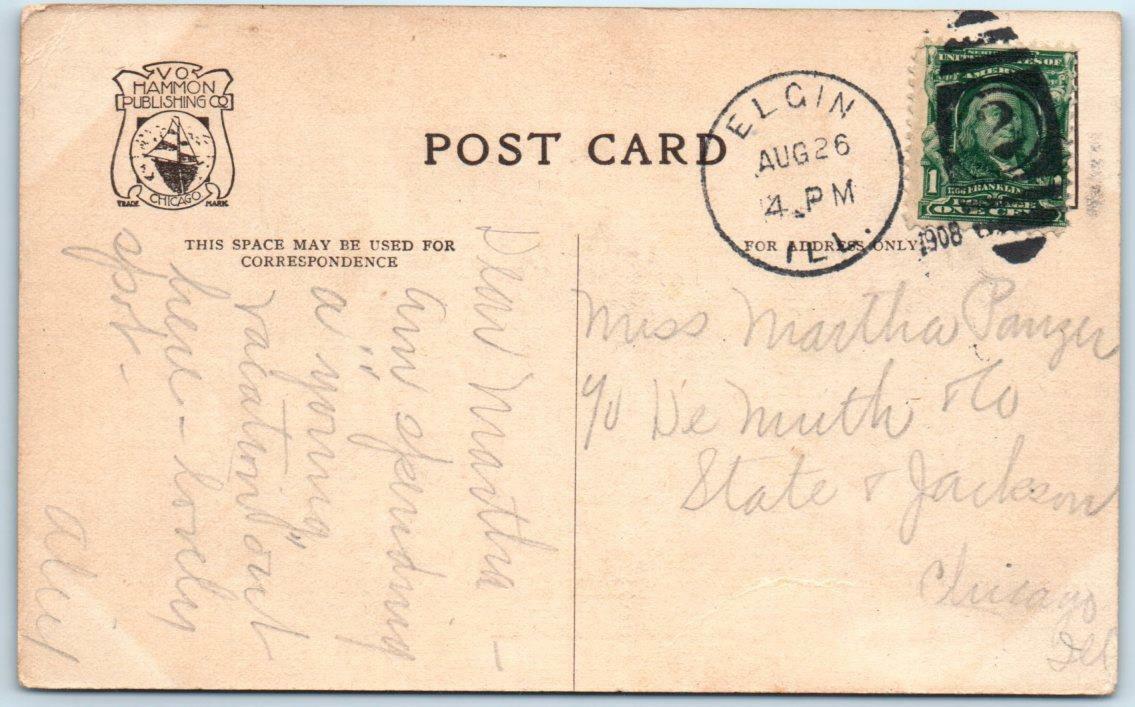 V.O.
HAMMON
PUBLISHING CO
CHICAGO
TRADE MARK
POST CARD
ELGIN
AUG 26
4 PM
ILL.
1908
2
UNITED STATES OF
AMERICA
1
FRANKLIN
ONE CENT
THIS SPACE MAY BE USED FOR
CORRESPONDENCE
FOR ADDRESS ONLY
Dear Martha –
Am spending
a "young
vacation" out
here – lovely
spot –
Miss Martha Panzer
c/o De Muth & Co
State & Jackson
Chicago
Ill